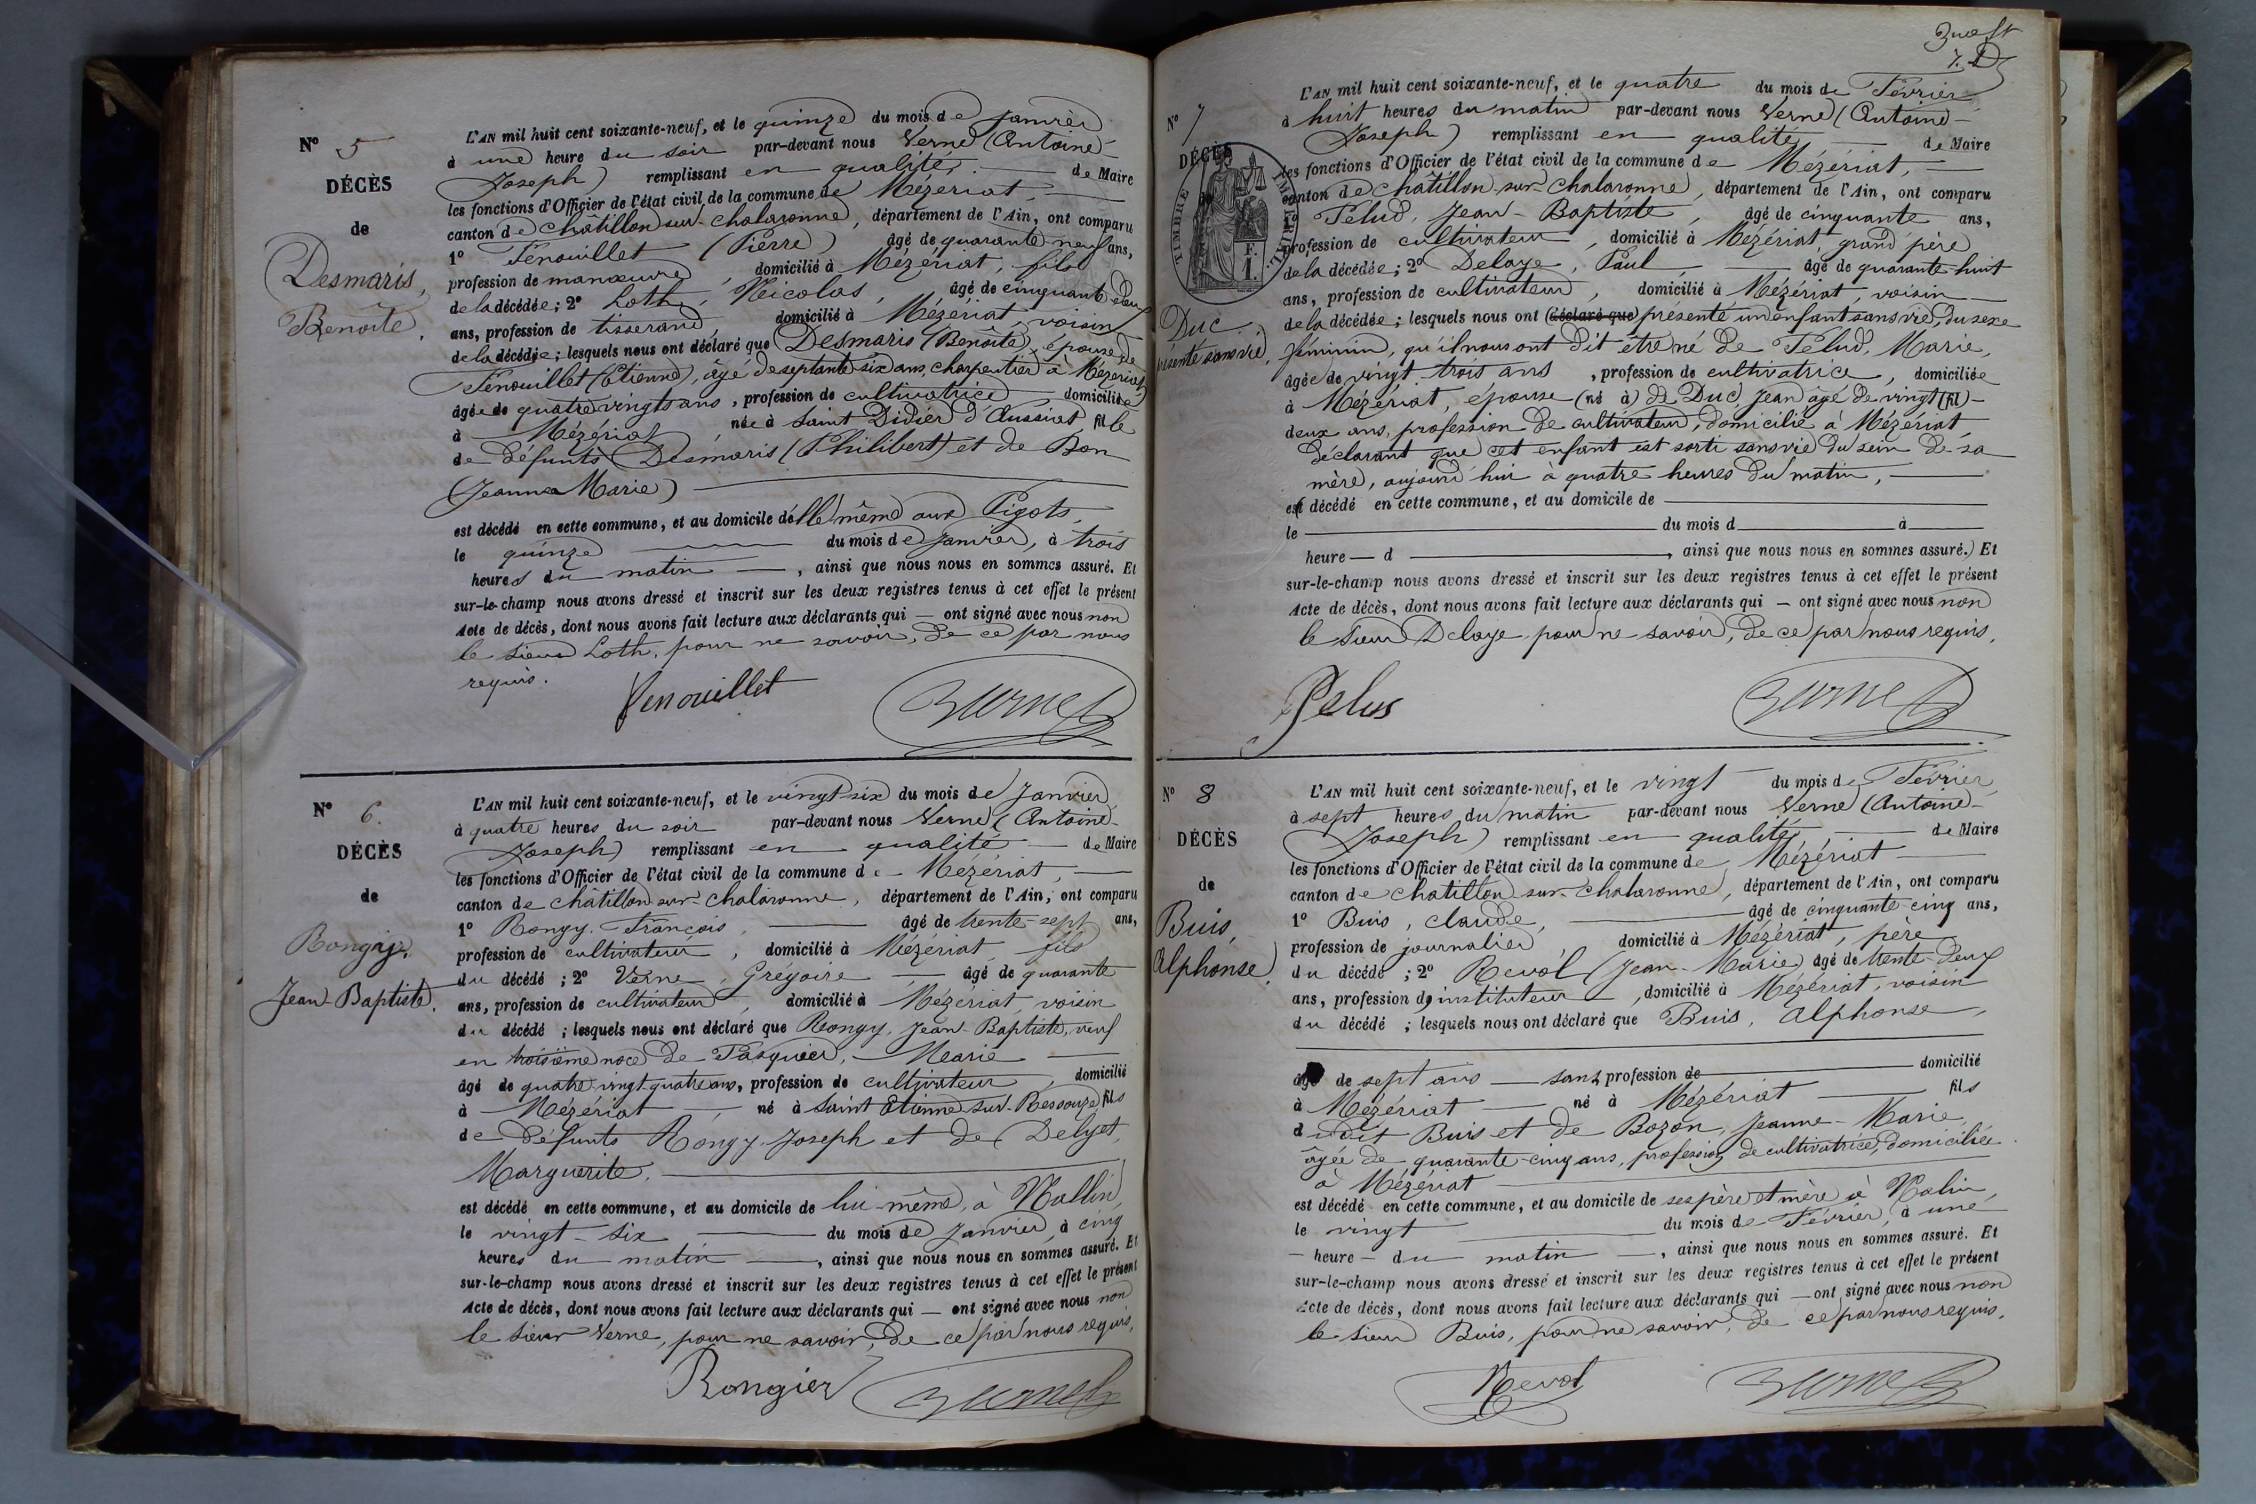 N° 5
DÉCÈS
de
Desmaris,
Benoîte.
L'AN mil huit cent soixante-neuf, et le quinze du mois de Janvier
à une heure du soir par-devant nous Verne (Antoine-
Joseph) remplissant en qualité de Maire
les fonctions d'Officier de l'état civil de la commune de Mézériat,
canton de Châtillon-sur-Chalaronne, département de l'Ain, ont comparu
1° Fenouillet (Pierre) âgé de quarante neuf ans,
profession de manœuvre, domicilié à Mézériat, fils
de la décédée; 2° Loth, Nicolas, âgé de cinquante deux
ans, profession de tisserand, domicilié à Mézériat, voisin
de la décédée; lesquels nous ont déclaré que Desmaris (Benoîte), épouse de
Fenouillet (Etienne), âgé de septante six ans, charpentier à Mézériat
âgée de quatre vingts ans, profession de cultivatrice domiciliée
à Mézériat, née à Saint Didier d'Aussiat, fille
de défunts Desmaris (Philibert) et de Bon
(Jeanne Marie)
est décédé en cette commune, et au domicile d'elle même aux Pigots,
le quinze du mois de Janvier, à trois
heures du matin, ainsi que nous nous en sommes assuré. Et
sur-le-champ nous avons dressé et inscrit sur les deux registres tenus à cet effet le présent
Acte de décès, dont nous avons fait lecture aux déclarants qui — ont signé avec nous non
le sieur Loth, pour ne savoir, de ce par nous
requis.
Fenouillet Verne
N° 6.
DÉCÈS
de
Jean-Baptiste.
L'AN mil huit cent soixante-neuf, et le vingt-six du mois de Janvier,
à quatre heures du soir par-devant nous Verne (Antoine-
Joseph) remplissant en qualité de Maire
les fonctions d'Officier de l'état civil de la commune de Mézériat,
canton de Châtillon-sur-Chalaronne, département de l'Ain, ont comparu
1° Rongy, François, âgé de trente-sept ans,
profession de cultivateur, domicilié à Mézériat, fils
du décédé; 2° Verne, Grégoire âgé de quarante
ans, profession de cultivateur, domicilié à Mézériat, voisin
du décédé; lesquels nous ont déclaré que Rongy, Jean-Baptiste, veuf
en troisième noce de Pasquier, Marie
âgé de quatre-vingt-quatre ans, profession de cultivateur, domicilié
à Mézériat, né à Saint Etienne-sur-Ressouze, fils
de défunts Rongy Joseph et de Delyet,
Marguerite,
est décédé en cette commune, et au domicile de lui-même, à Mallin,
le vingt-six du mois de Janvier, à cinq
heures du matin, ainsi que nous nous en sommes assuré. Et
sur-le-champ nous avons dressé et inscrit sur les deux registres tenus à cet effet le présent
Acte de décès, dont nous avons fait lecture aux déclarants qui — ont signé avec nous non
le sieur Verne, pour ne savoir, de ce par nous requis,
Rongier Verne
N° 7
DÉCÈS
TIMBRE IMPÉRIAL
F. 1.
Duc
présenté sans vie.
L'AN mil huit cent soixante-neuf, et le quatre du mois de Février
à huit heures du matin par-devant nous Verne (Antoine-
Joseph) remplissant en qualité de Maire
les fonctions d'Officier de l'état civil de la commune de Mézériat,
canton de Châtillon-sur-Chalaronne, département de l'Ain, ont comparu
1° Pélud, Jean-Baptiste, âgé de cinquante ans,
profession de cultivateur, domicilié à Mézériat, grand père
de la décédée; 2° Delaye, Paul âgé de quarante huit
ans, profession de cultivateur, domicilié à Mézériat, voisin
de la décédée; lesquels nous ont (déclaré que) présenté un enfant sans vie, du sexe
féminin, qu'il nous ont dit être né de Pélud, Marie,
âgée de vingt-trois ans, profession de cultivatrice, domiciliée
à Mézériat, épouse (né à) de Duc, Jean âgé de vingt (fil)-
deux ans, profession de cultivateur, domicilié à Mézériat,
déclarant que cet enfant est sorti sans vie du sein de sa
mère, aujourd'hui à quatre heures du matin,
est (décédé en cette commune, et au domicile de
le du mois d à
heure d, ainsi que nous nous en sommes assuré.) Et
sur-le-champ nous avons dressé et inscrit sur les deux registres tenus à cet effet le présent
Acte de décès, dont nous avons fait lecture aux déclarants qui — ont signé avec nous non
le sieur Delaye, pour ne savoir, de ce par nous requis.
Pelus Verne
N° 8
DÉCÈS
de
Buis,
Alphonse.
L'AN mil huit cent soixante-neuf, et le vingt du mois de Février,
à sept heures du matin par-devant nous Verne (Antoine-
Joseph) remplissant en qualité, de Maire
les fonctions d'Officier de l'état civil de la commune de Mézériat
canton de Châtillon-sur-Chalaronne, département de l'Ain, ont comparu
1° Buis, Claude, âgé de cinquante-cinq ans,
profession de journalier, domicilié à Mézériat, père
du décédé; 2° Revol (Jean-Marie) âgé de trente-deux
ans, profession d'instituteur, domicilié à Mézériat, voisin
du décédé; lesquels nous ont déclaré que Buis, Alphonse,
âgé de sept ans — sans profession de domicilié
à Mézériat né à Mézériat fils
dudit Buis et de Bozon, Jeanne-Marie,
âgée de quarante-cinq ans, profession de cultivatrice, domiciliée
à Mézériat
est décédé en cette commune, et au domicile de ses père et mère à Malin,
le vingt du mois de Février, à une
heure du matin, ainsi que nous nous en sommes assuré. Et
sur-le-champ nous avons dressé et inscrit sur les deux registres tenus à cet effet le présent
Acte de décès, dont nous avons fait lecture aux déclarants qui — ont signé avec nous non
le sieur Buis, pour ne savoir, de ce par nous requis.
Revol Verne